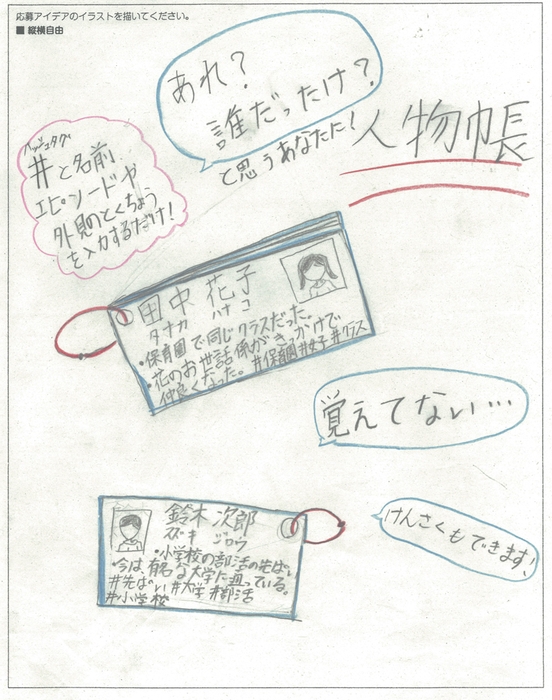 応募アイデアのイラストを描いてください。
■ 縦横自由
あれ?
誰だったけ?
と思うあなたに!
人物帳
ハッシュタグ
#と名前
エピソードや
外見のとくちょう
を入力するだけ!
田中 花子
タナカ ハナコ
・保育園で同じクラスだった
・花のお世話係がきっかけで
仲良くなった。#保育園#女子#クラス
覚えてない…
鈴木 次郎
スズキ ジロウ
・小学校の部活の先ぱい
・今は、有名な大学に通っている。
#先ぱい #大学 #部活
#小学校
けんさくもできます!